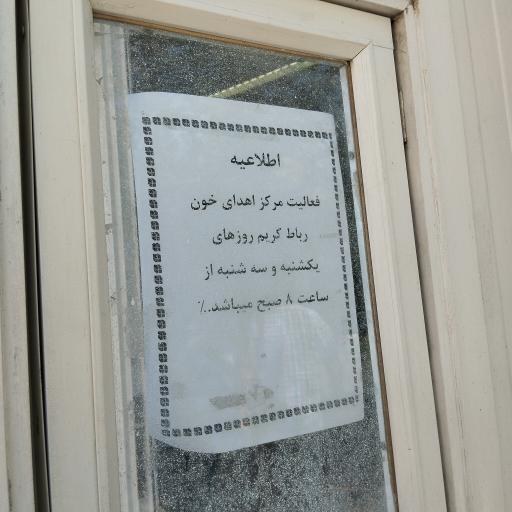 اطلاعیه
فعالیت مرکز اهدای خون
رباط کریم روزهای
یکشنبه و سه شنبه از
ساعت ۸ صبح میباشد..٪